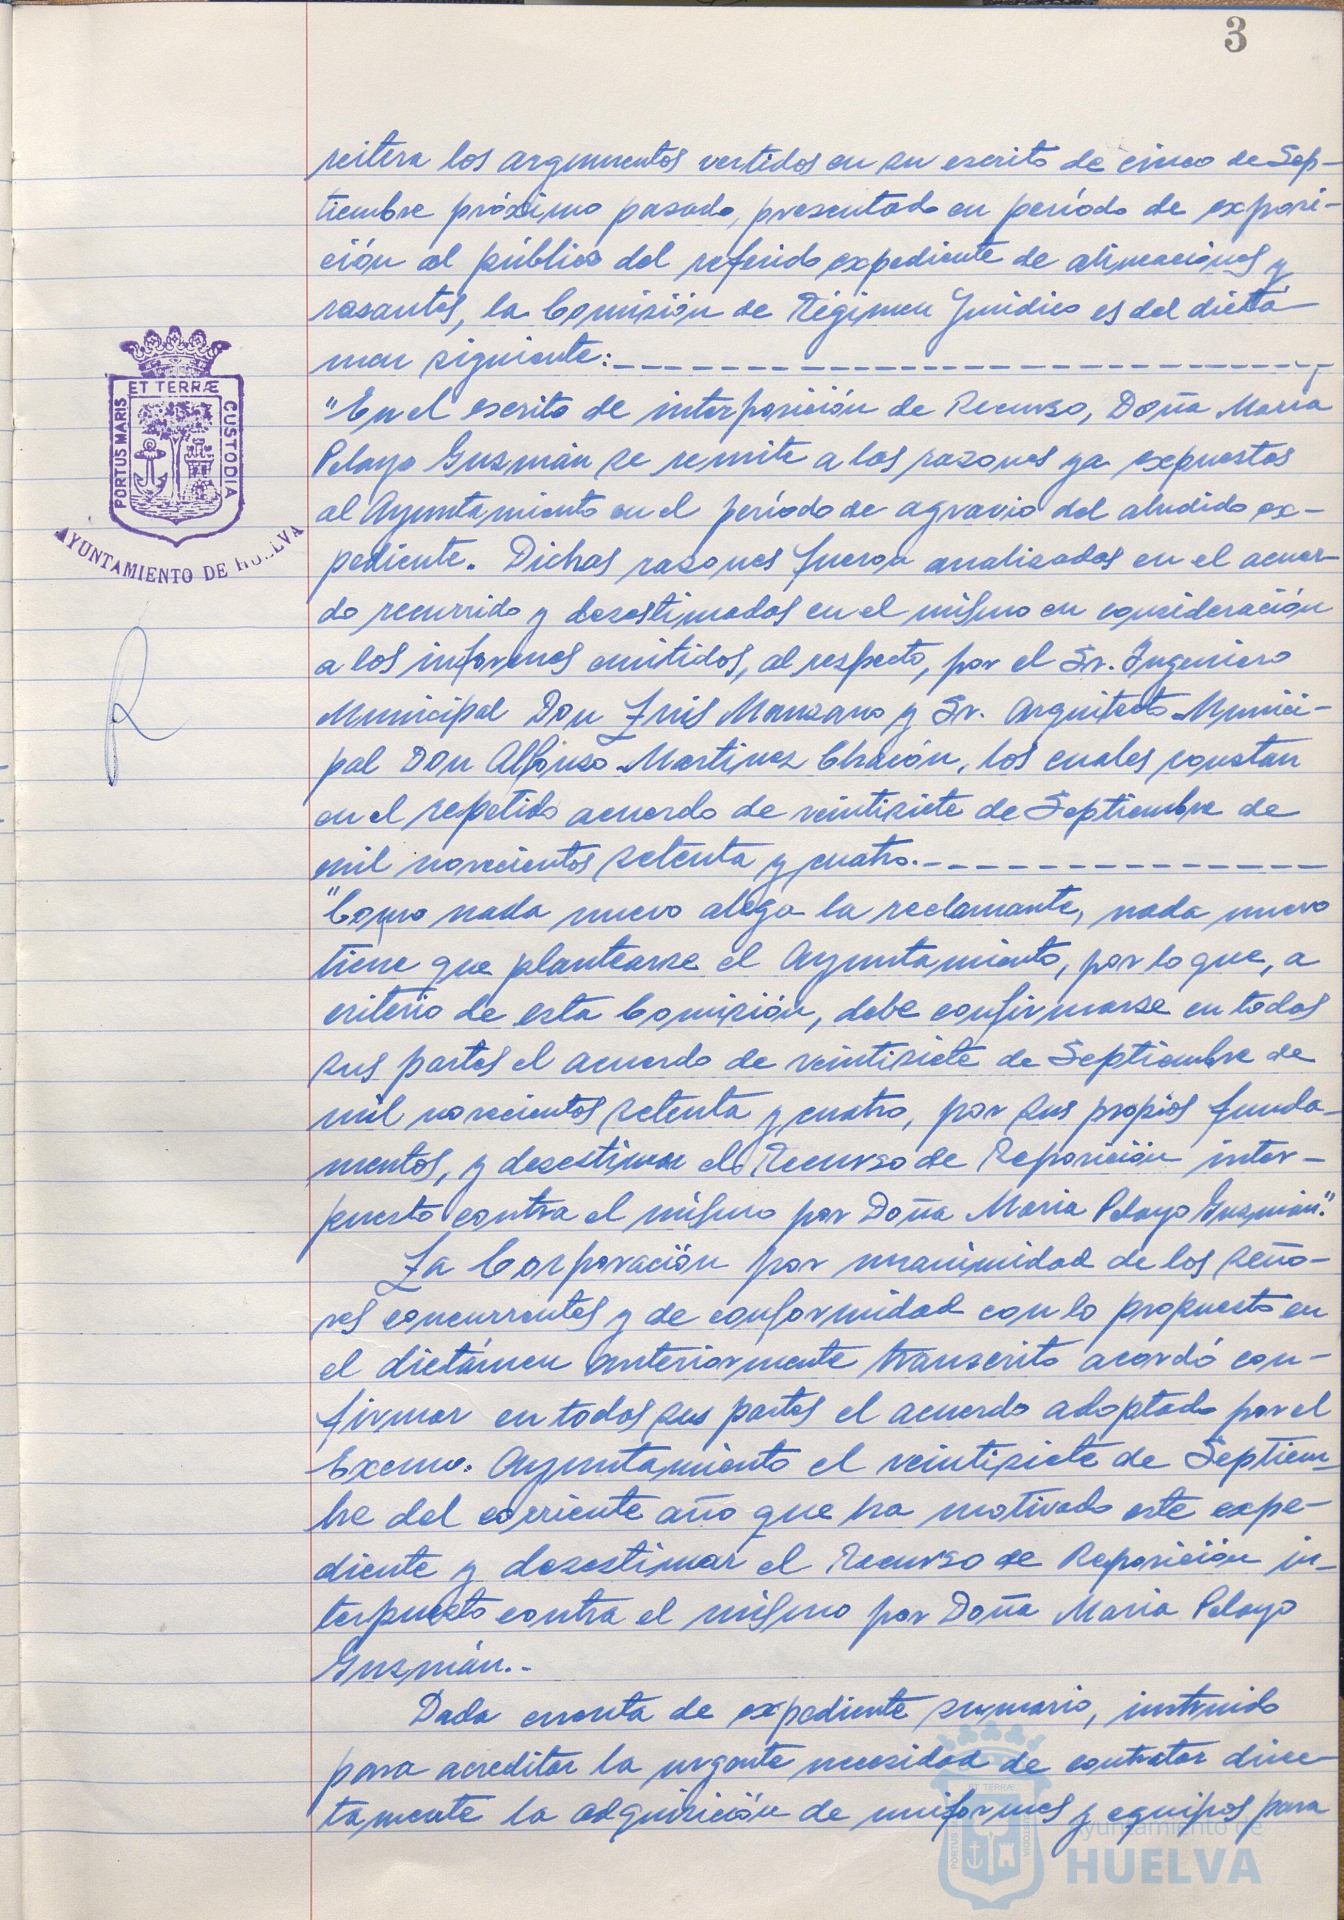 3
reitera los argumentos vertidos en su escrito de cinco de Sep-
tiembre próximo pasado, presentado en período de exposi-
ción al público del referido expediente de alineaciones y
rasantes, la Comisión de Régimen Jurídico es del dictá-
men siguiente:
"En el escrito de interposición de Recurso, Doña María
Pelayo Guzmán se remite a las razones ya expuestas
al Ayuntamiento en el período de agravio del aludido ex-
pediente. Dichas razones fueron analizadas en el acuer-
do recurrido y desestimadas en el mismo en consideración
a los informes emitidos, al respecto, por el Sr. Ingeniero
Municipal Don Luis Manzano y Sr. Arquitecto Munici-
pal Don Alfonso Martinez Chacón, los cuales constan
en el repetido acuerdo de veintisiete de Septiembre de
mil novecientos setenta y cuatro.
"Como nada nuevo alega la reclamante, nada nuevo
tiene que plantearse el Ayuntamiento, por lo que, a
criterio de esta Comisión, debe confirmarse en todas
sus partes el acuerdo de veintisiete de Septiembre de
mil novecientos setenta y cuatro, por sus propios funda-
mentos, y desestimar el Recurso de Reposición inter-
puesto contra el mismo por Doña Maria Pelayo Guzmán".
La Corporación por unanimidad de los seño-
res concurrentes y de conformidad con lo propuesto en
el dictámen anteriormente transcrito acordó con-
firmar en todas sus partes el acuerdo adoptado por el
Excmo. Ayuntamiento el veintisiete de Septiem-
bre del corriente año que ha motivado este expe-
diente y desestimar el Recurso de Reposición in-
terpuesto contra el mismo por Doña Maria Pelayo
Guzmán.-
Dada cuenta de expediente sumario, instruido
para acreditar la urgente necesidad de contratar direc-
tamente la adquisición de uniformes y equipos para
PORTUS MARIS
ET TERRÆ
CUSTODIA
AYUNTAMIENTO DE HUELVA
Ayuntamiento de
HUELVA